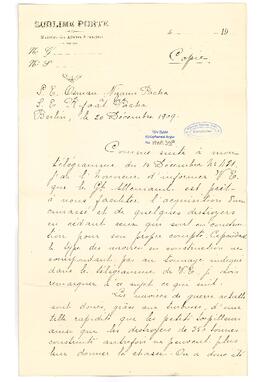 SUBLIME PORTE
Ministère des Affaires Étrangères
le 19
N. G.
N. S.
Copie
S. E. Osman Nizami Pacha
S. E. Rifaat Pacha
Berlin, le 20 Décembre 1909.
Comme suite à mon
télégramme du 14 Décembre
j'ai l'honneur d'informer V. E.
que le Gt. Allemand est prêt
à nous faciliter l'acquisition d'un
cuirassé et de quelques destroyers
en cédant ceux qui sont en construc
tion pour son propre compte. Cependant
le type des navires en construction ne
correspondant pas au tonnage indiqué
dans le télégramme de V. E. je dois
remarquer à ce sujet ce qui suit.
Les navires de guerre actuels
sont doués, grâce aux turbines, d'une
telle rapidité que les petits torpilleurs
ainsi que les destroyers de 350 tonnes
construits autrefois ne peuvent plus
leur donner la chasse. On a donc été